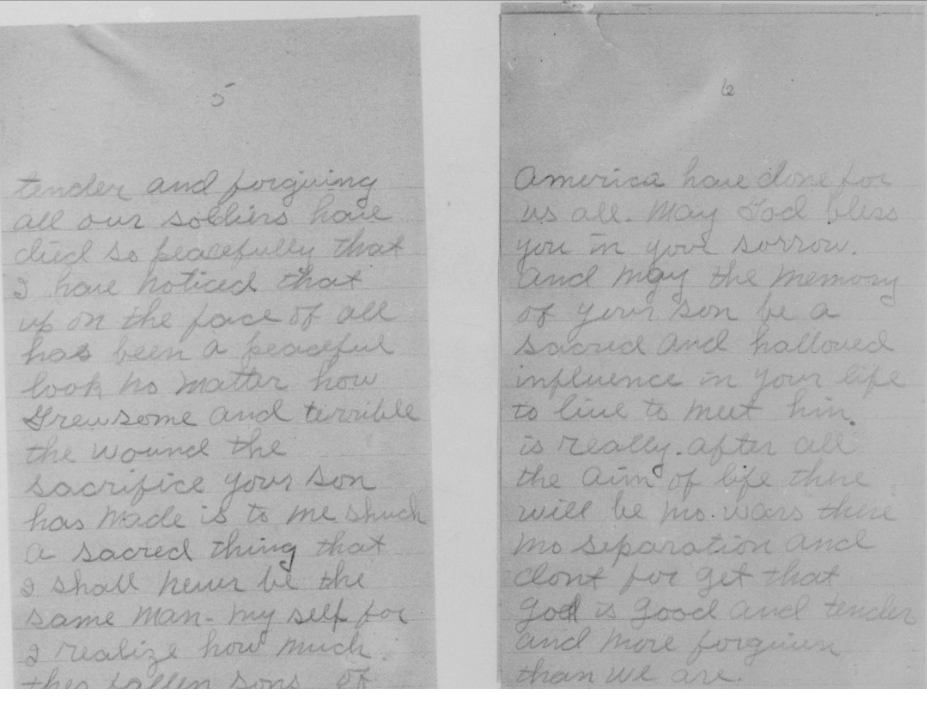 5
tender and forgiving
all our soldiers have
died so peacefully that
I have noticed that
up on the face of all
has been a peaceful
look no matter how
Grewsome and terrible
the wound the
sacrifice your son
has made is to me shuch
a sacred thing that
I shall never be the
same man - my self for
I realize how much
thes fallen sons of
6
America have done for
us all. May God bless
you in your sorrow.
And may the memory
of your son be a
sacred and hallowed
influence in your life
to live to meet him
is really. after all
the aim of life there
will be no. wars there
no separation and
dont for get that
god is good and tender
and more forgiven
than we are.